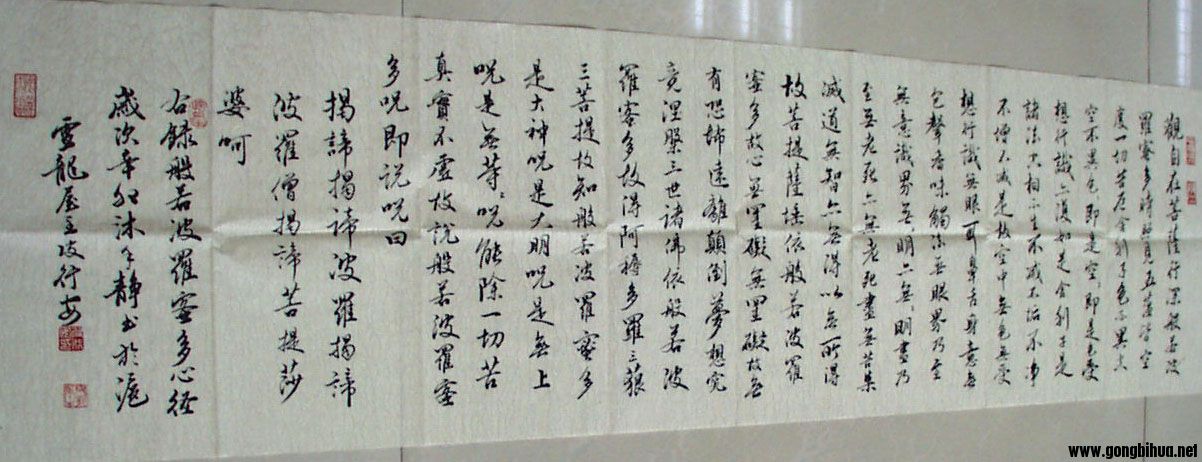 觀自在菩薩行深般若波
羅蜜多時照見五蘊皆空
度一切苦厄舍利子色不異空
空不異色色即是空空即是色受
想行識亦復如是舍利子是
諸法空相不生不滅不垢不淨
不增不減是故空中無色無受
想行識無眼耳鼻舌身意無
色聲香味觸法無眼界乃至
無意識界無無明亦無無明盡乃
至無老死亦無老死盡無苦集
滅道無智亦無得以無所得
故菩提薩埵依般若波羅
蜜多故心無罣礙無罣礙故無
有恐怖遠離顛倒夢想究
竟涅槃三世諸佛依般若波
羅蜜多故得阿耨多羅三藐
三菩提故知般若波羅蜜多
是大神咒是大明咒是無上
咒是無等等咒能除一切苦
真實不虛故說般若波羅蜜
多咒即說咒曰
揭諦揭諦波羅揭諦
波羅僧揭諦菩提莎
婆呵
右錄般若波羅蜜多心經
歲次辛卯沐手靜書於滬
雪龍屋主
www.gongbihua.net